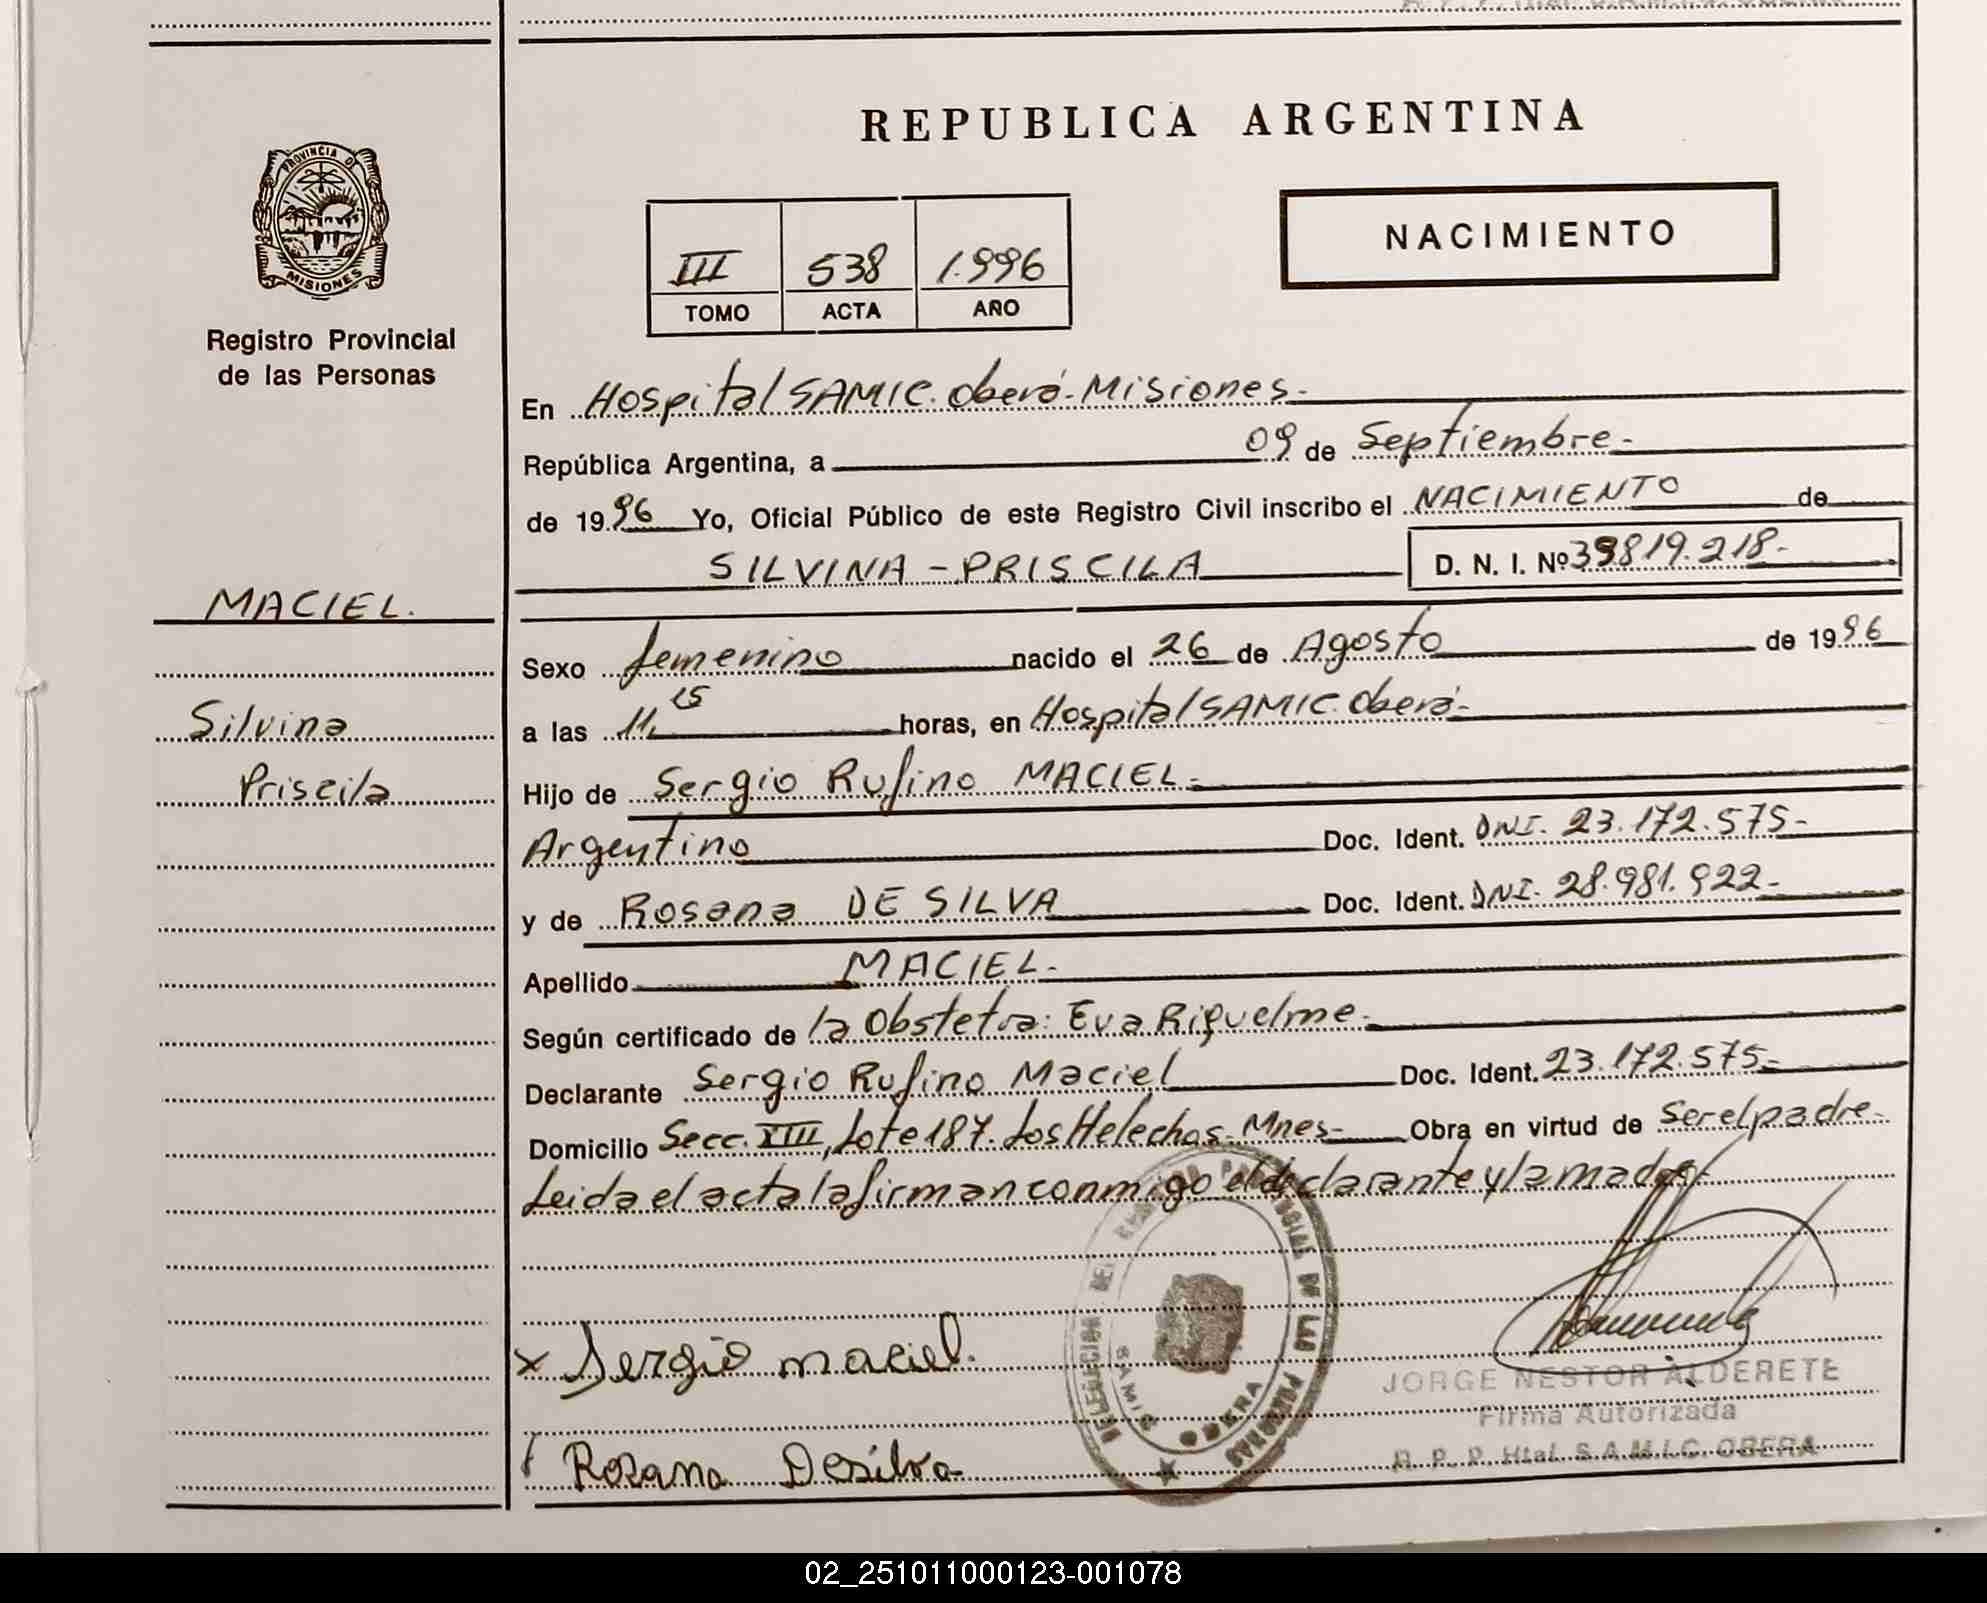 REPUBLICA ARGENTINA
PROVINCIA DE
MISIONES
Registro Provincial
de las Personas
III 538 1.996
TOMO ACTA AÑO
NACIMIENTO
En Hospital SAMIC. Oberá-Misiones-
República Argentina, a 09 de Septiembre-
de 1996 Yo, Oficial Público de este Registro Civil inscribo el NACIMIENTO de
SILVINA - PRISCILA D. N. I. Nº 39819.218-
MACIEL.
Silvina
Priscila
Sexo femenino nacido el 26 de Agosto de 1996
a las 11,15 horas, en Hospital SAMIC. Oberá-
Hijo de Sergio Rufino MACIEL-
Argentino Doc. Ident. DNI. 23.172.575-
y de Rosana DE SILVA Doc. Ident. DNI. 28.981.922-
Apellido MACIEL-
Según certificado de la Obstetra: Eva Riquelme-
Declarante Sergio Rufino Maciel Doc. Ident. 23.172.575-
Domicilio Secc. XIII, Lote 187. Los Helechos- Mnes- Obra en virtud de Ser el padre-
Leida el acta la firman conmigo el declarante y la madre
x Sergio maciel.
Rosana Desilva
DELEGACION DEL REGISTRO PROVINCIAL DE LAS PERSONAS
SAMIC OBERA
JORGE NESTOR ALDERETE
Firma Autorizada
R. P. P. Htal. S.A.M.I.C. OBERA
02_251011000123-001078